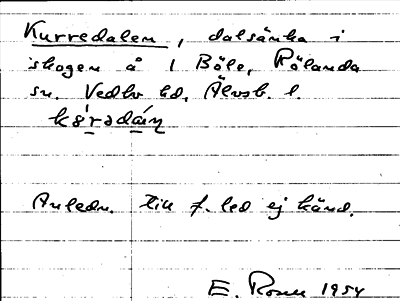 Kurredalen, dalsänka i
skogen å 1 Böle, Rölanda
sn. Vedbo hd, Älvsb. l.
kɵ́rədàɳ
Anledn. till f. led ej känd.
E. Rosen 1954